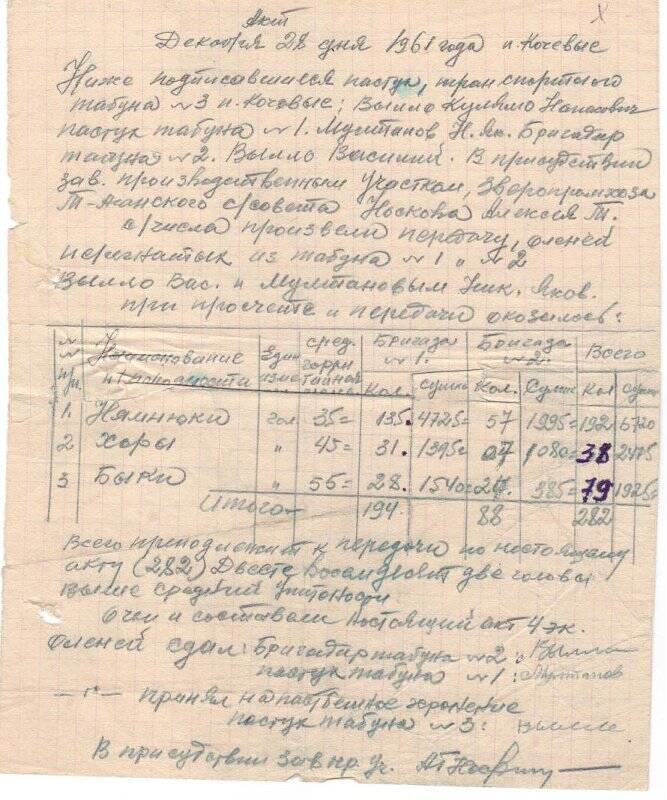 Акт
Декабря 28 дня 1961 года п. Кочевые
Ниже подписавшиеся пастух, транспортного
табуна №3 п. Кочевые; Вылло
пастух табуна №1. Мултанов Н. Як. Бригадир
табуна №2. Вылло Василий. В присутствии
зав. производственным участком, Зверопромхоза
с/совета Носкова Алексея Т.
с/числа произвели передачу, оленей
из табуна №1 и №2
Вылло Вас. и Мултановым Ник. Яков.
при просчете и передачи оказалось:
№ № п.п. Наименование Един. изме сред. Бригада №1. Бригада №2. Всего
Кол. Сумма Кол. Сумм Кол Сум
1. Нямнюки гол 35= 135. 4725= 57 1995= 192 6720
2 Хоры " 45= 31. 1395= 1080= 38 2475
3 Быки 55= 28. 1540= 385= 79 1925=
Итого 194. 88 282
Всего к передачи по настоящему
акту (282) Двести восемдесят две головы
выше средней упитаности
О чем и составили настоящий акт 4 эк.
Оленей сдал: Бригадир табуна №2: Вылло
пастух табуна №1: Мултанов
—"— принял на пастбешное хронение
пастух табуна №3: Вылло
В присутствии Зав. пр. уч.